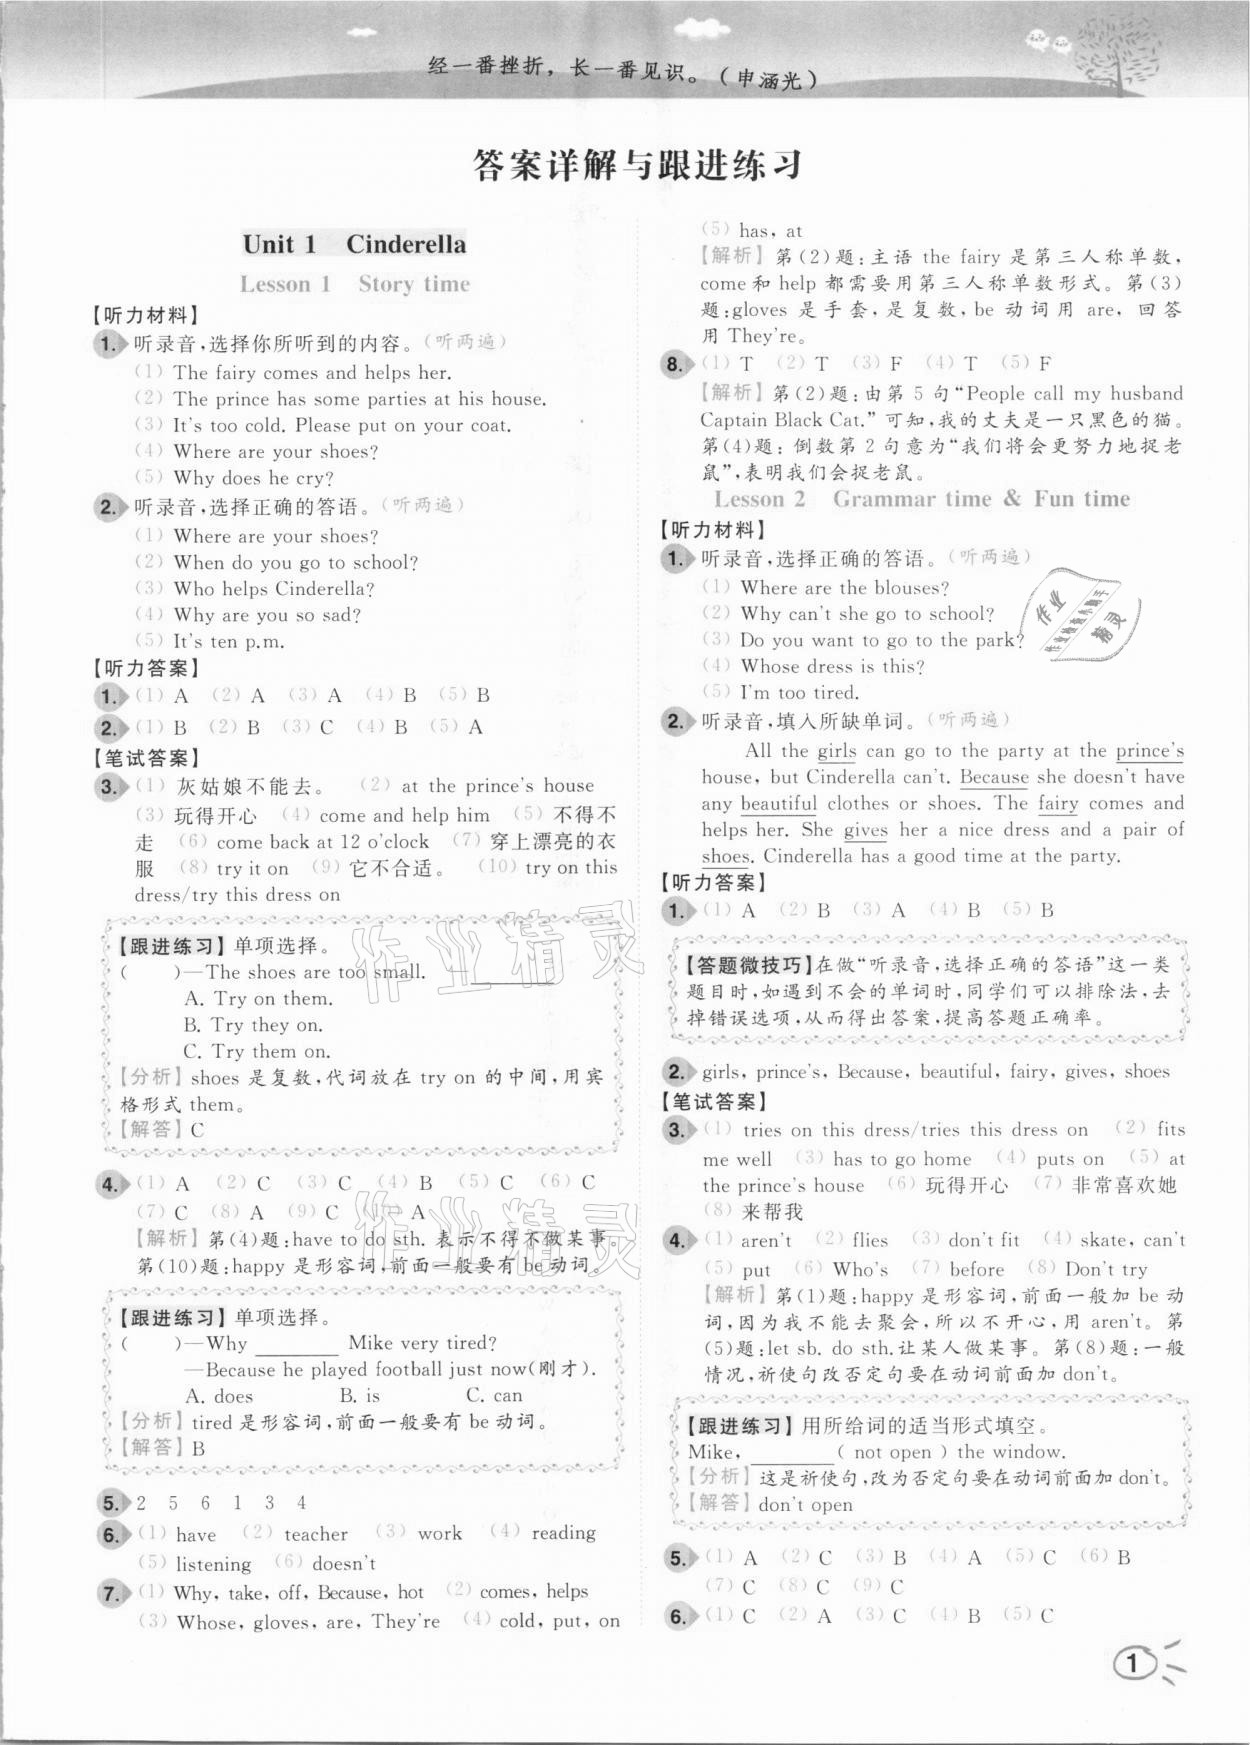 经一番挫折，长一番见识。（申涵光）
答案详解与跟进练习
Unit 1 Cinderella
Lesson 1 Story time
【听力材料】
1. 听录音,选择你所听到的内容。（听两遍）
（1）The fairy comes and helps her.
（2）The prince has some parties at his house.
（3）It's too cold. Please put on your coat.
（4）Where are your shoes?
（5）Why does he cry?
2. 听录音,选择正确的答语。（听两遍）
（1）Where are your shoes?
（2）When do you go to school?
（3）Who helps Cinderella?
（4）Why are you so sad?
（5）It's ten p.m.
【听力答案】
1.（1）A （2）A （3）A （4）B （5）B
2.（1）B （2）B （3）C （4）B （5）A
【笔试答案】
3.（1）灰姑娘不能去。 （2）at the prince's house
（3）玩得开心 （4）come and help him （5）不得不
走 （6）come back at 12 o'clock （7）穿上漂亮的衣
服 （8）try it on （9）它不合适。 （10）try on this
dress/try this dress on
【跟进练习】单项选择。
（ ）—The shoes are too small. ________
A. Try on them.
B. Try they on.
C. Try them on.
【分析】shoes 是复数,代词放在 try on 的中间,用宾
格形式 them。
【解答】C
4.（1）A （2）C （3）C （4）B （5）C （6）C
（7）C （8）A （9）C （10）A
【解析】第(4)题:have to do sth. 表示不得不做某事。
第(10)题:happy 是形容词,前面一般要有 be 动词。
【跟进练习】单项选择。
（ ）—Why ________ Mike very tired?
—Because he played football just now(刚才).
A. does B. is C. can
【分析】tired 是形容词,前面一般要有 be 动词。
【解答】B
5. 2 5 6 1 3 4
6.（1）have （2）teacher （3）work （4）reading
（5）listening （6）doesn't
7.（1）Why, take, off, Because, hot （2）comes, helps
（3）Whose, gloves, are, They're （4）cold, put, on
（5）has, at
【解析】第(2)题:主语 the fairy 是第三人称单数,
come 和 help 都需要用第三人称单数形式。第(3)
题:gloves 是手套,是复数,be 动词用 are,回答
用 They're。
8.（1）T （2）T （3）F （4）T （5）F
【解析】第(2)题:由第 5 句“People call my husband
Captain Black Cat.”可知,我的丈夫是一只黑色的猫。
第(4)题: 倒数第 2 句意为“我们将会更努力地捉老
鼠”,表明我们会捉老鼠。
Lesson 2 Grammar time & Fun time
【听力材料】
1. 听录音,选择正确的答语。（听两遍）
（1）Where are the blouses?
（2）Why can't she go to school?
（3）Do you want to go to the park?
（4）Whose dress is this?
（5）I'm too tired.
2. 听录音,填入所缺单词。（听两遍）
All the girls can go to the party at the prince's
house, but Cinderella can't. Because she doesn't have
any beautiful clothes or shoes. The fairy comes and
helps her. She gives her a nice dress and a pair of
shoes. Cinderella has a good time at the party.
【听力答案】
1.（1）A （2）B （3）A （4）B （5）B
【答题微技巧】在做“听录音,选择正确的答语”这一类
题目时,如遇到不会的单词时,同学们可以排除法,去
掉错误选项,从而得出答案,提高答题正确率。
2. girls, prince's, Because, beautiful, fairy, gives, shoes
【笔试答案】
3.（1）tries on this dress/tries this dress on （2）fits
me well （3）has to go home （4）puts on （5）at
the prince's house （6）玩得开心 （7）非常喜欢她
（8）来帮我
4.（1）aren't （2）flies （3）don't fit （4）skate, can't
（5）put （6）Who's （7）before （8）Don't try
【解析】第(1)题:happy 是形容词,前面一般加 be 动
词,因为我不能去聚会,所以不开心,用 aren't。第
(5)题:let sb. do sth.让某人做某事。第(8)题:一般
情况,祈使句改否定句要在动词前面加 don't。
【跟进练习】用所给词的适当形式填空。
Mike, ________ ( not open ) the window.
【分析】这是祈使句,改为否定句要在动词前面加 don't。
【解答】don't open
5.（1）A （2）C （3）B （4）A （5）C （6）B
（7）C （8）C （9）C
6.（1）C （2）A （3）C （4）B （5）C
1
作业精灵
作业精灵
作业
精灵